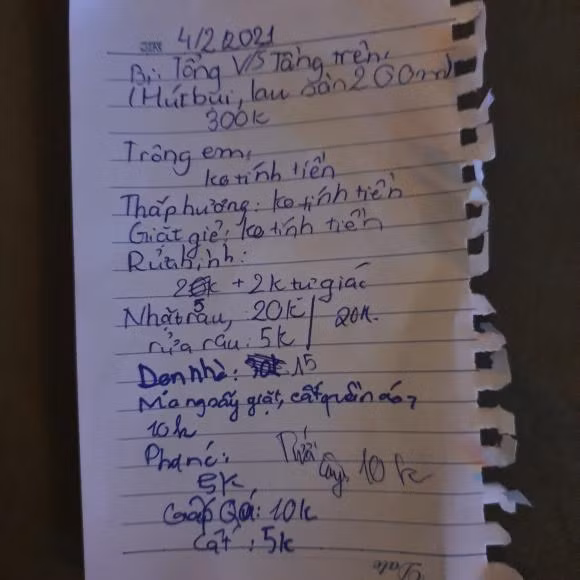 4/2 2021
Bị: Tổng V/S Tầng trên,
(Hút bụi, lau sàn 200m)
300k
Trông em,
ko tính tiền
Thắp hương: ko tính tiền
Giặt giẻ: ko tính tiền
Rửa
25k + 2k tự giác
Nhặt rau, 20k
rửa rau: 5k
20k.
Dọn nhà: 15
Mang sấy giặt, cất quần áo,
10k
Pha
5k
cây 10k
Gấp QÁ: 10k
Cất: 5k
Date